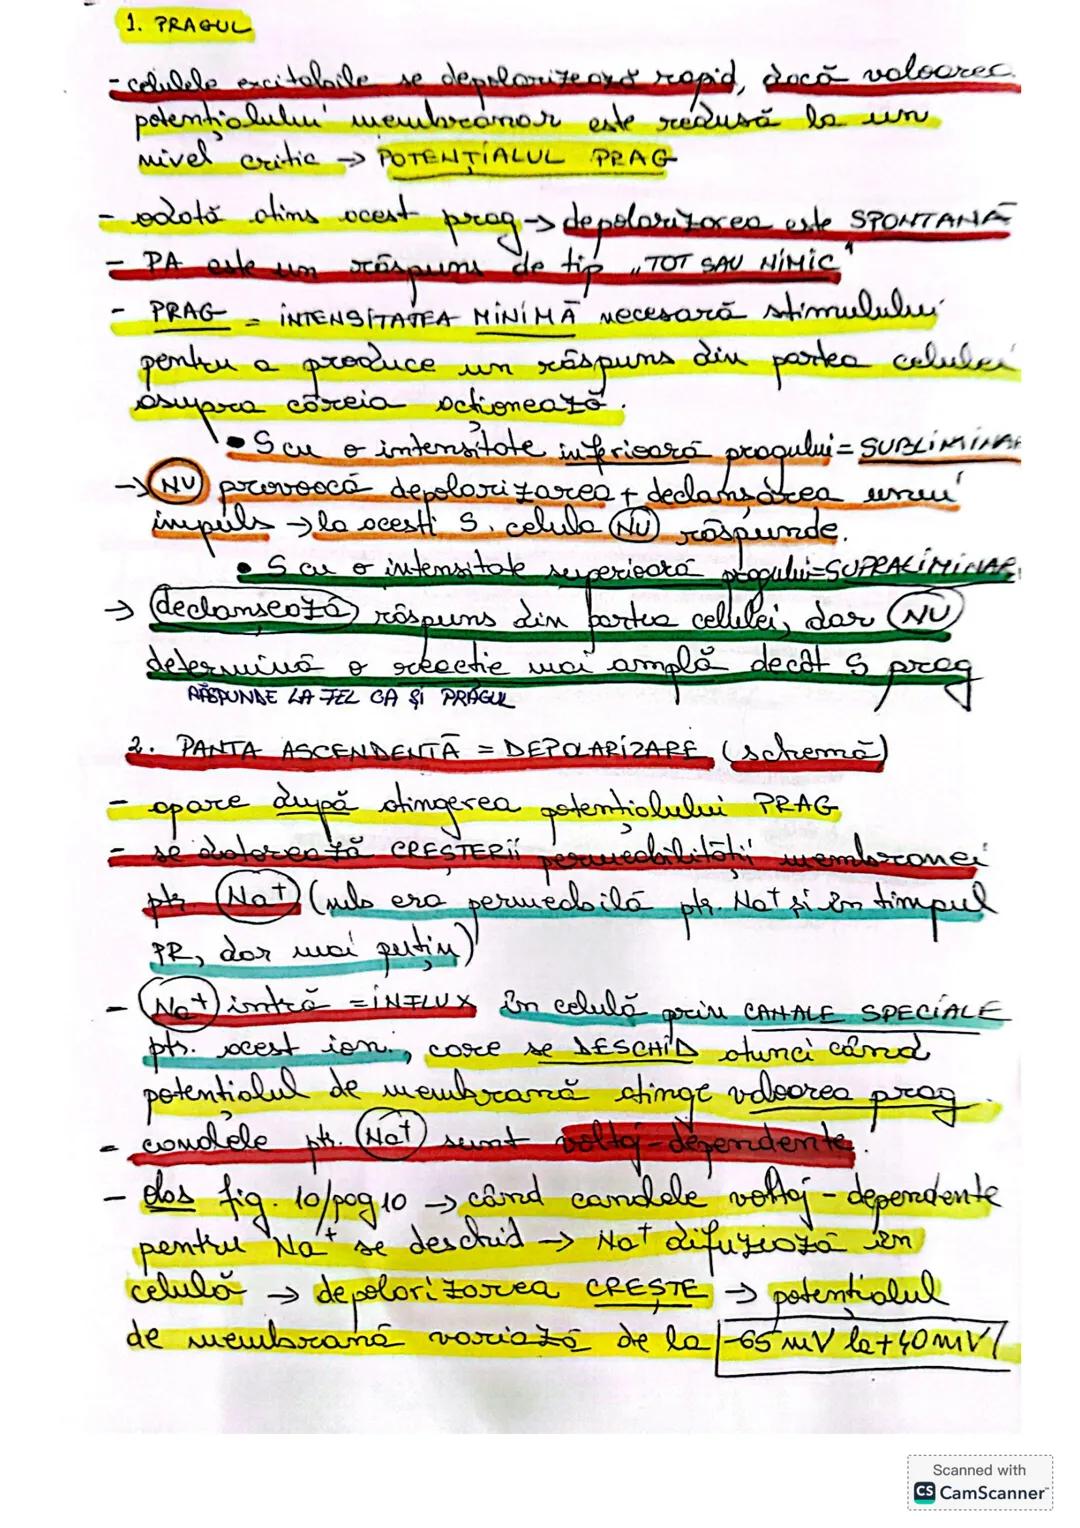 1. PRAGUL
- celulele excitabile se depolarizează rapid, dacă valoarea
potențialului membranar este redusă la un
nivel critic → POTENȚIALUL PRAG
- odată atins acest prag → depolarizarea este SPONTANĂ
- PA este un răspuns de tip „TOT SAU NIMIC"
- PRAG = INTENSITATEA MINIMĂ necesară stimulului
pentru a produce un răspuns din partea celulei
asupra căreia acționează.
• S cu o intensitate inferioară pragului = SUBLIMINAR
→ NU provoacă depolarizarea + declanșarea unui
impuls → la acești S, celula NU răspunde.
• S cu o intensitate superioară pragului = SUPRALIMINAR
→ declanșează răspuns din partea celulei, dar NU
determină o reacție mai amplă decât S prag
RĂSPUNDE LA FEL CA ȘI PRAGUL
2. PANTA ASCENDENTĂ = DEPOLARIZARE (schemă)
- apare după atingerea potențialului PRAG
- se datorează CREȘTERII permeabilității membranei
ptr. Na+ (mb era permeabilă ptr. Na+ și în timpul
PR, dar mai puțin)
- Na+ intră = INFLUX în celulă prin CANALE SPECIALE
ptr. acest ion, care se DESCHID atunci când
potențialul de membrană atinge valoarea prag.
- canalele ptr. Na+ sunt voltaj-dependente.
- fig. 10/pag 10 → când canalele voltaj-dependente
pentru Na+ se deschid → Na+ difuzează în
celulă → depolarizarea CREȘTE → potențialul
de membrană variază de la -65 mV la +40 mV
Scanned with
CS CamScanner